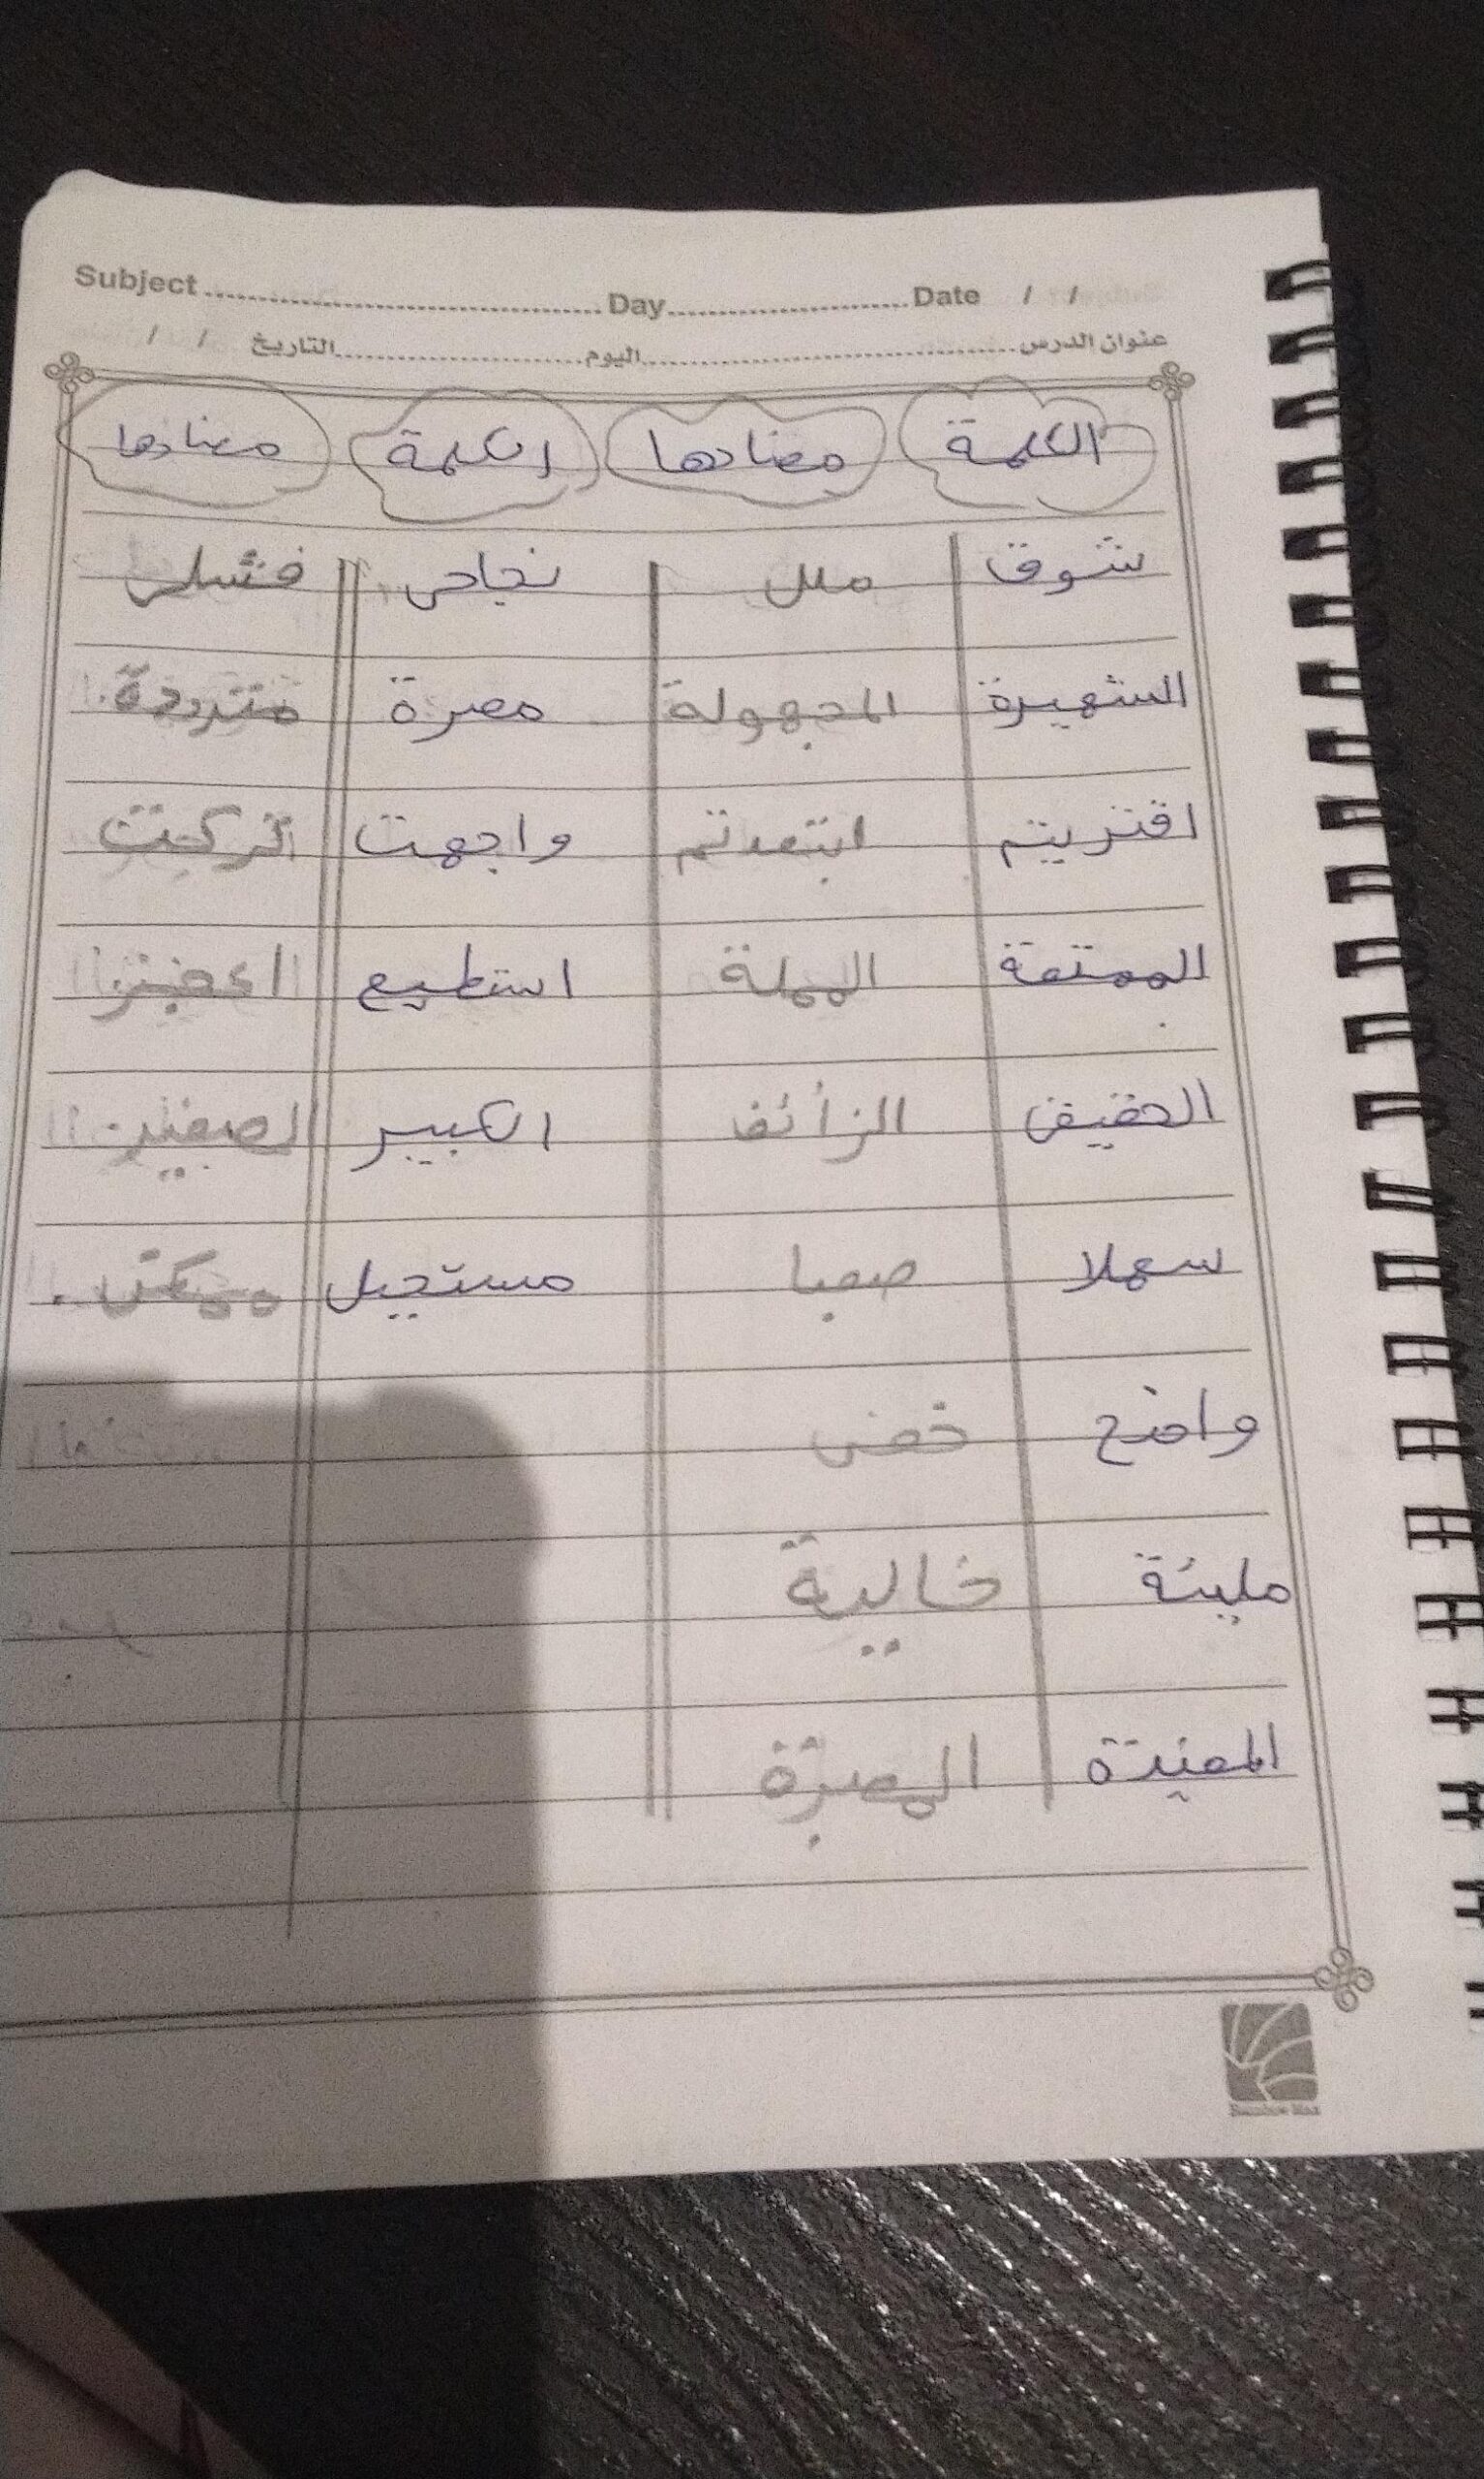 Subject Day Date / /
عنوان الدرس اليوم التاريخ / /
الكلمة مضادها الكلمة مضادها
شوق ملل نجاحى فشل
الشهيرة المجهولة مصرة مترددة
اقتربتم ابتعدتم واجهت تركت
الممتعة المملة استطيع اعجز
الحقيقى الزائف الكبير الصغير
سهلا صعبا مستحيل ممكن
واضح خفى
مليئة خالية
المفيدة المضرة
Rainbow Max